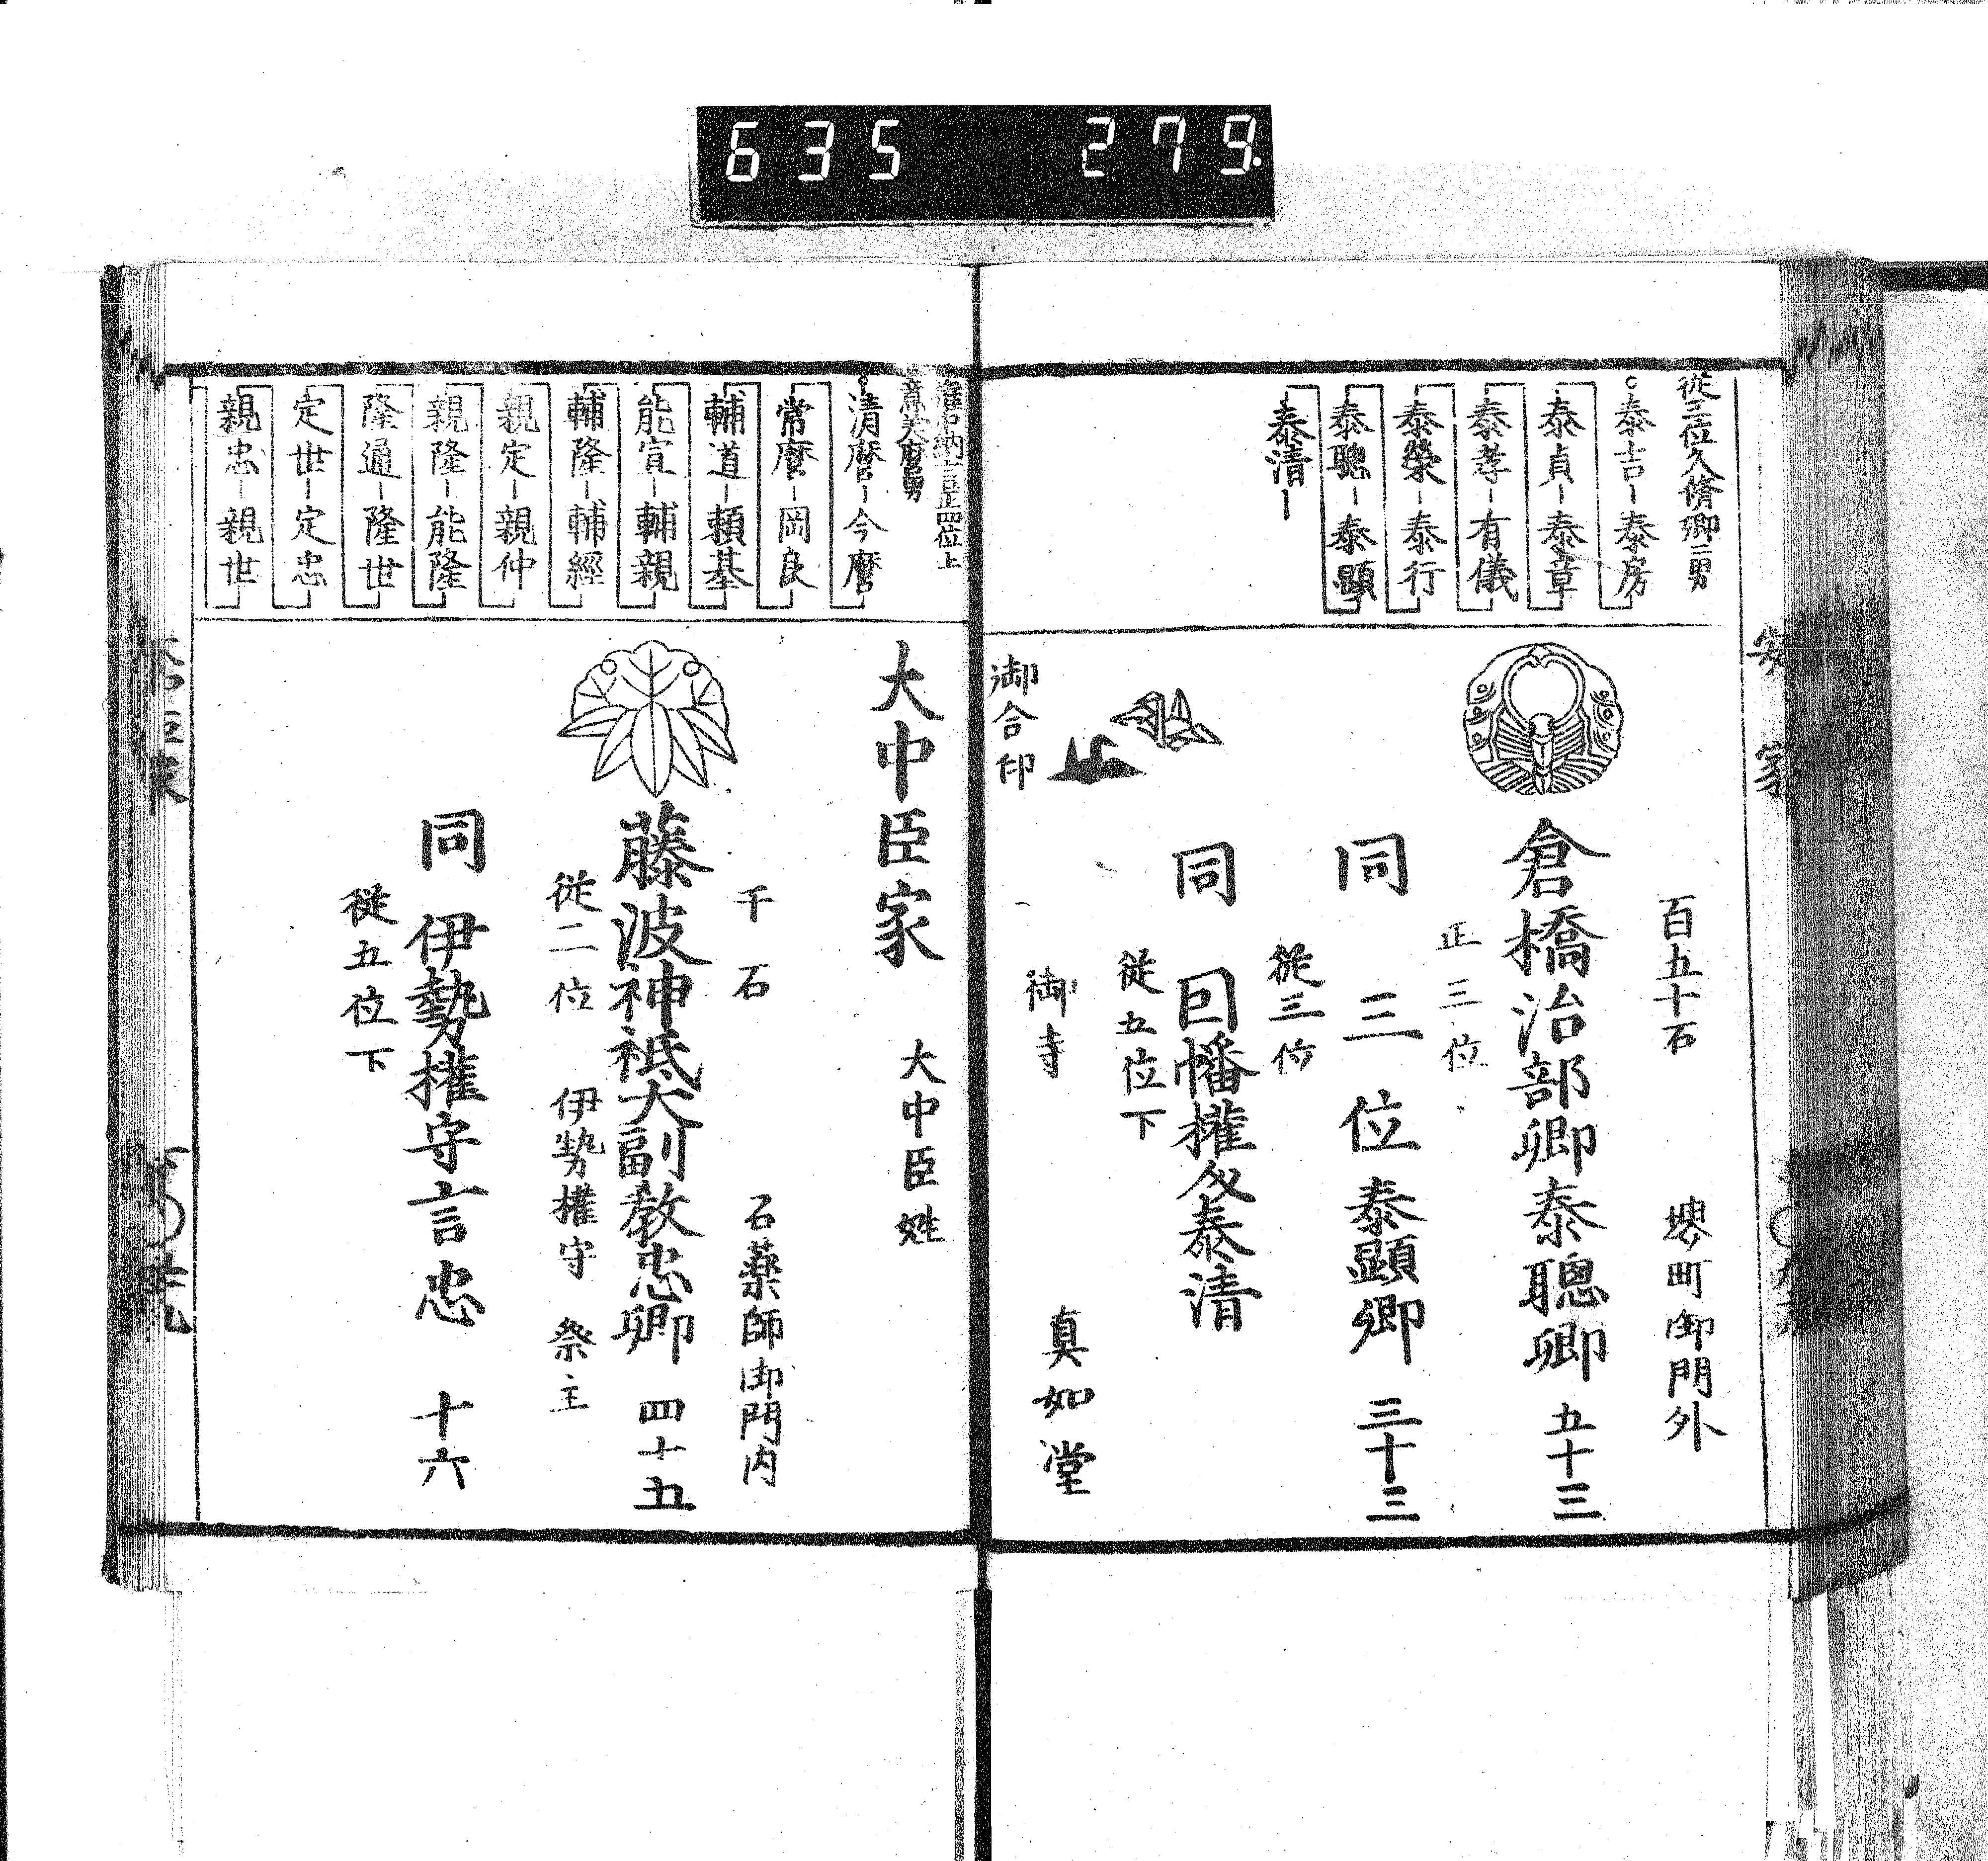 635 279
安家
從三位久脩卿二男
泰吉-泰房
泰貞-泰章
泰孝-有儀
泰榮-泰行
泰聰-泰顯
泰清-
百五十石 堺町御門外
倉橋治部卿泰聰卿 五十三
正三位
同 三位泰顯卿 三十三
從三位
同 因幡權介泰清
從五位下
御寺 真如堂
御合印
權中納言正四位上
意美麿男
清麿-今麿
常麿-岡良
輔道-頼基
能宣-輔親
輔隆-輔經
親定-親仲
親隆-能隆
隆通-隆世
定世-定忠
親忠-親世
大中臣家 大中臣姓
千石 石藥師御門内
藤波神祇大副教忠卿 四十五
從二位 伊勢權守 祭主
同 伊勢權守言忠 十六
從五位下